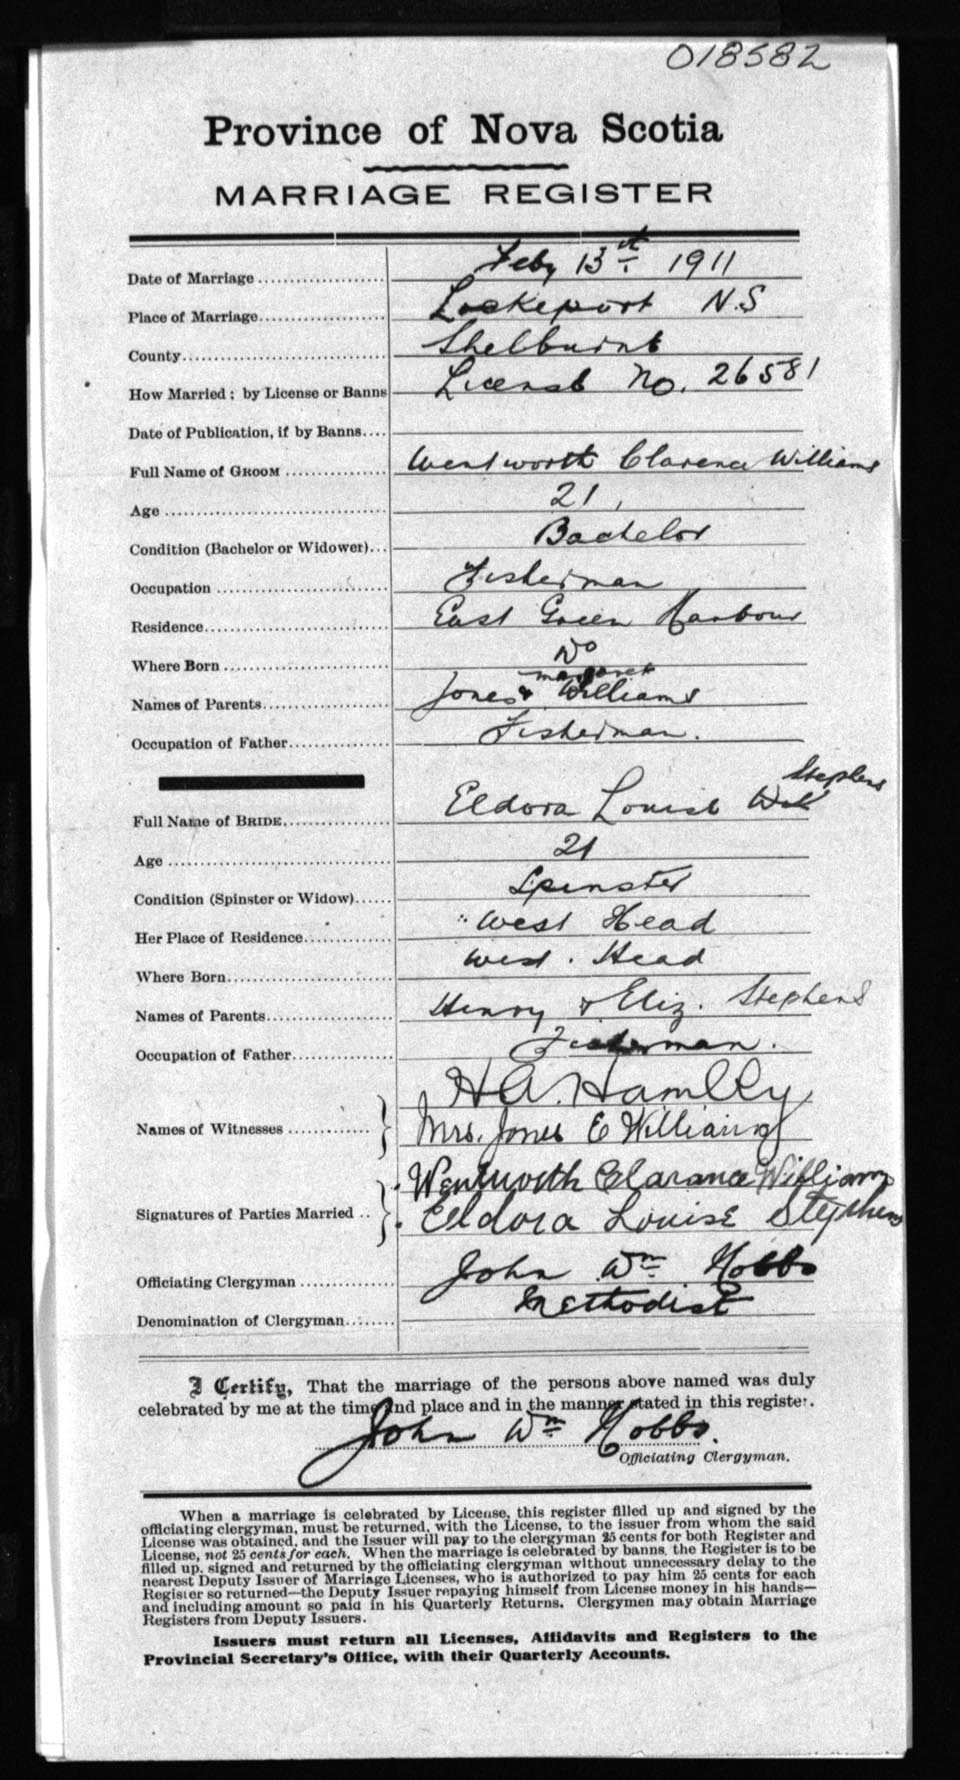 018582
Province of Nova Scotia
MARRIAGE REGISTER
Date of Marriage Feby 13th 1911
Place of Marriage Lockeport N.S
County Shelburne
How Married: by License or Banns License No. 26581
Date of Publication, if by Banns
Full Name of GROOM Wentworth Clarence Williams
Age 21
Condition (Bachelor or Widower) Bachelor
Occupation Fisherman
Residence East Green Harbour
Where Born Do
margaret
Names of Parents Jones & Williams
Occupation of Father Fisherman.
Stephens
Full Name of BRIDE Eldora Louise
Age 21
Condition (Spinster or Widow) Spinster
Her Place of Residence West Head
Where Born West. Head
Names of Parents Henry & Eliz. Stephens
Occupation of Father Fisherman.
H.A. Hamlly
Names of Witnesses
Mrs. Jones E Williams
Wentworth Clarance Williams
Signatures of Parties Married
Eldora Louise Stephens
Officiating Clergyman John Wm Hobbs
Denomination of Clergyman Methodist
I Certify, That the marriage of the persons above named was duly
celebrated by me at the time and place and in the manner stated in this register.
John Wm Hobbs.
Officiating Clergyman.
When a marriage is celebrated by License, this register filled up and signed by the
officiating clergyman, must be returned, with the License, to the issuer from whom the said
License was obtained, and the Issuer will pay to the clergyman 25 cents for both Register and
License, not 25 cents for each. When the marriage is celebrated by banns, the Register is to be
filled up, signed and returned by the officiating clergyman without unnecessary delay to the
nearest Deputy Issuer of Marriage Licenses, who is authorized to pay him 25 cents for each
Register so returned—the Deputy Issuer repaying himself from License money in his hands—
and including amount so paid in his Quarterly Returns. Clergymen may obtain Marriage
Registers from Deputy Issuers.
Issuers must return all Licenses, Affidavits and Registers to the
Provincial Secretary's Office, with their Quarterly Accounts.